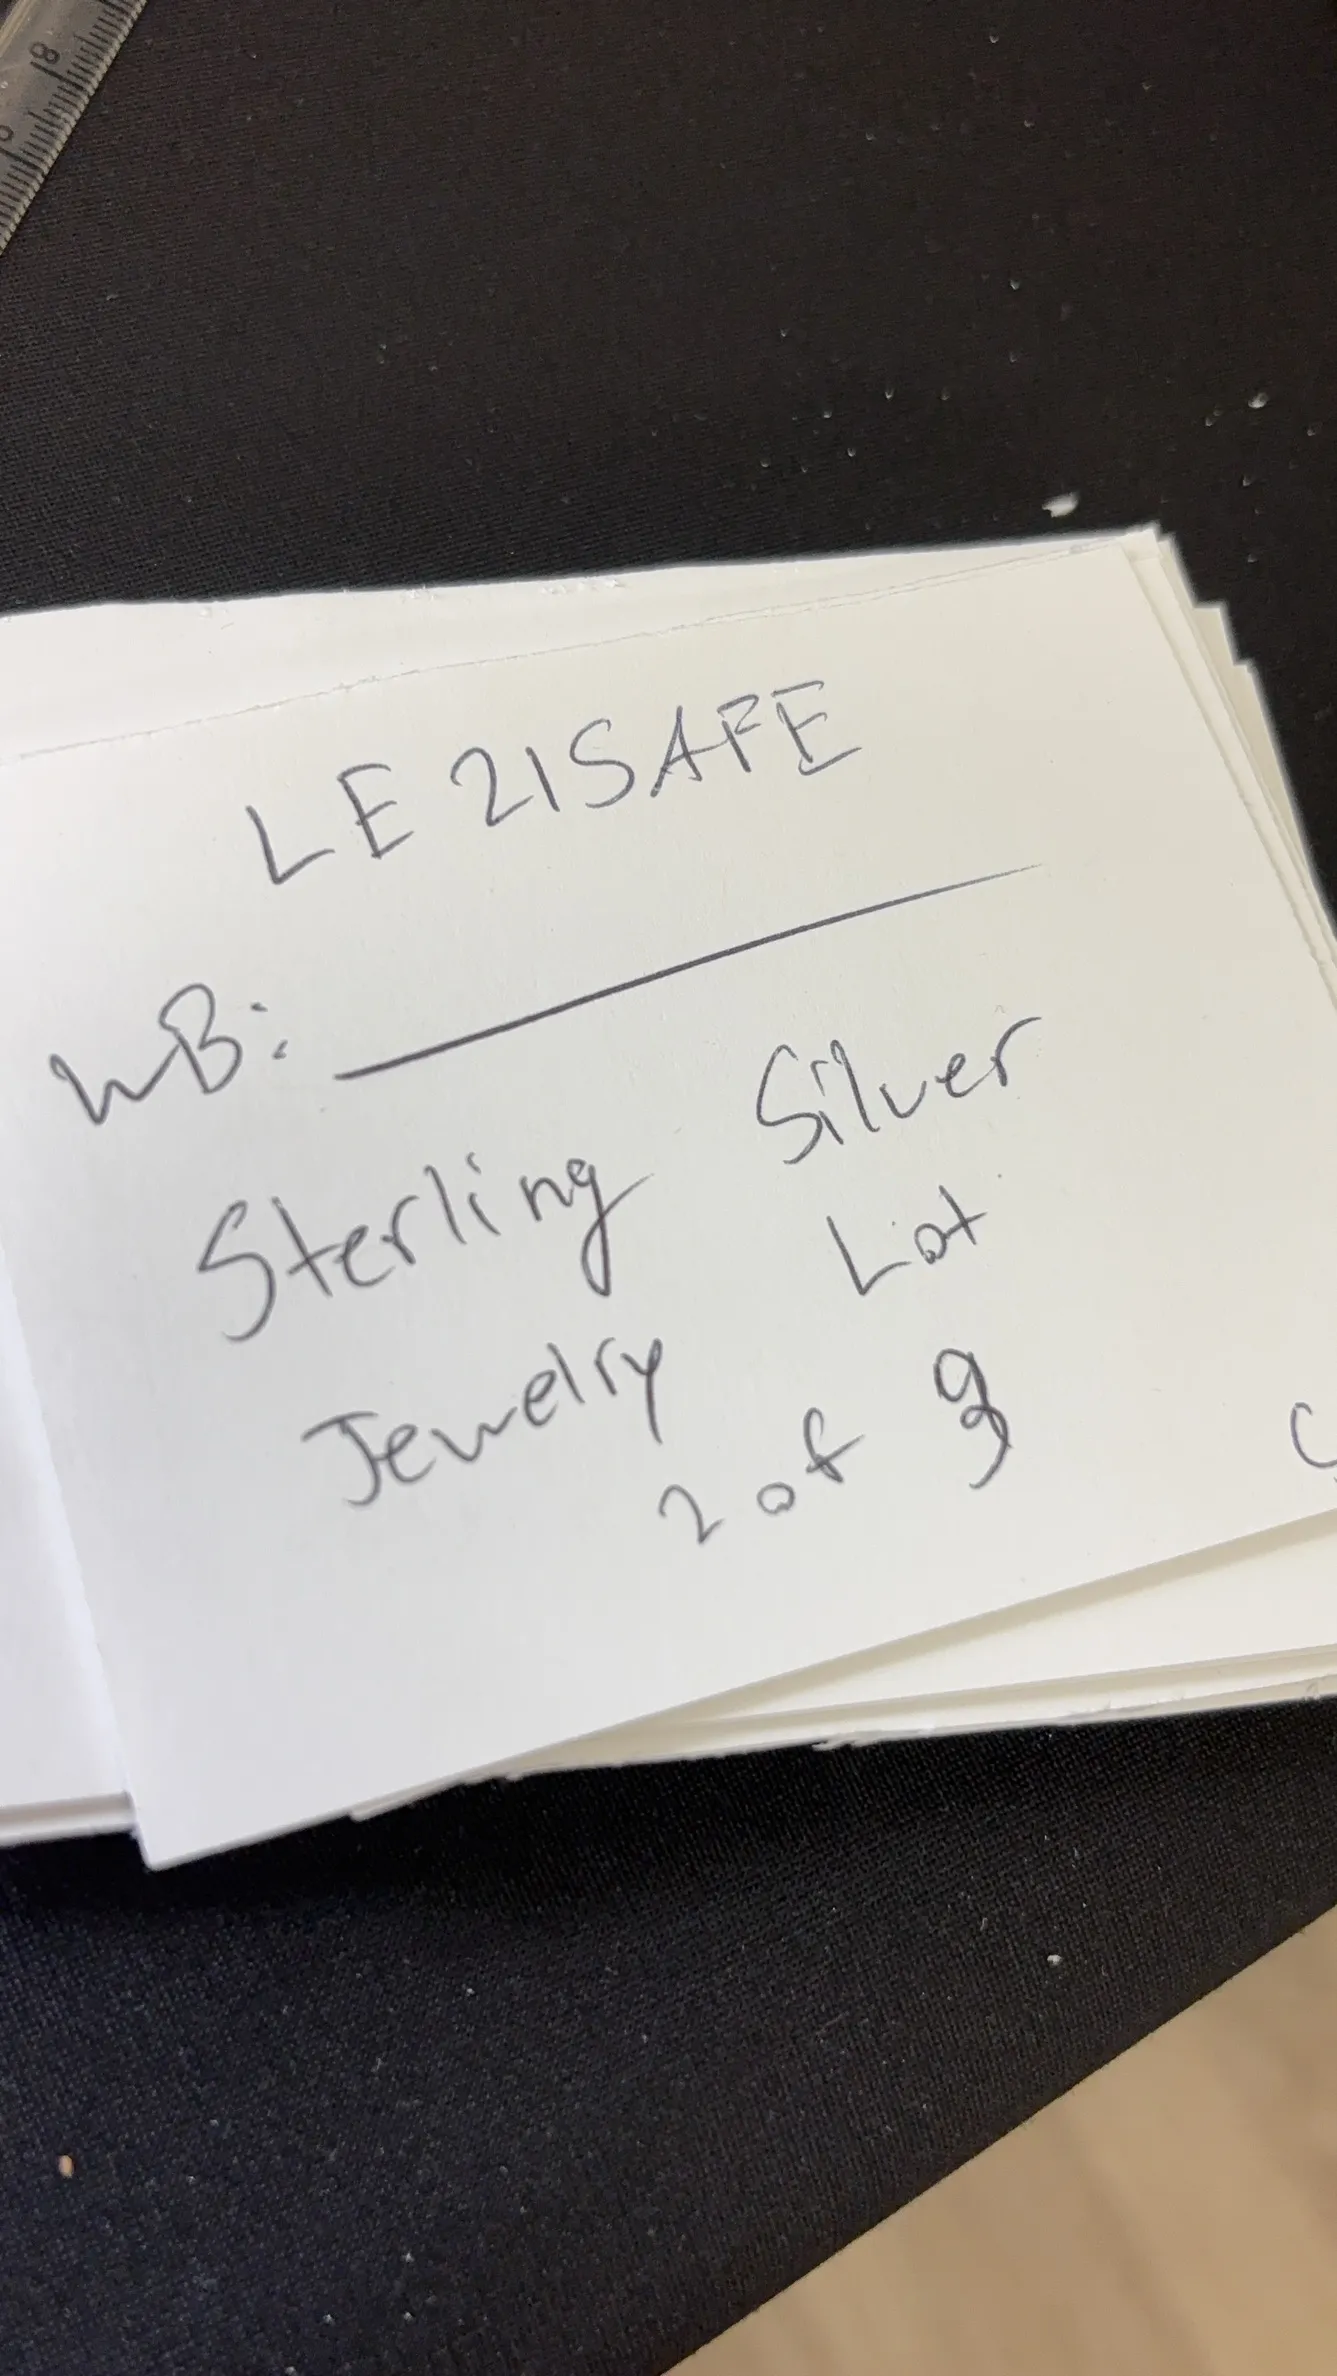 LE 21SAFE
WB:
Sterling Silver
Jewelry Lot
2 of
8